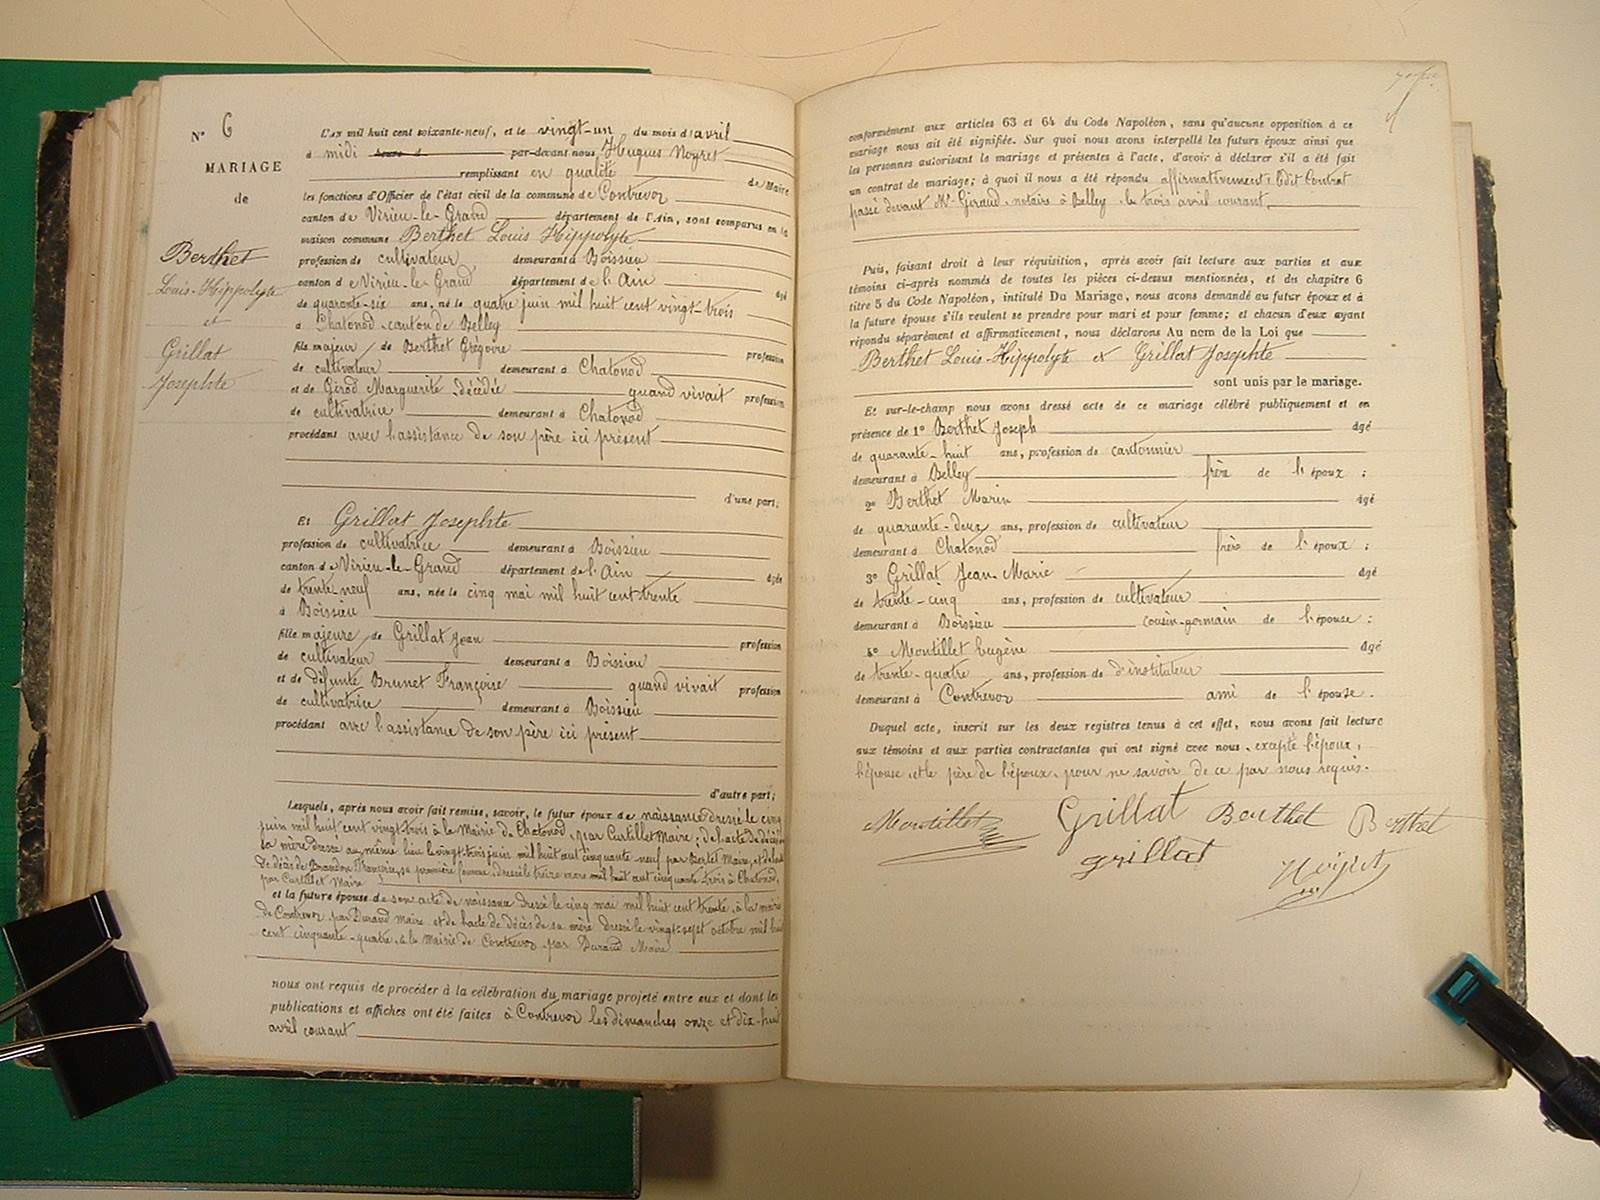 N° 6
MARIAGE
de
Berthet
Louis-Hippolyte
et
Grillat
Josephte
L'an mil huit cent soixante-neuf, et le vingt-un du mois d'avril
à midi heure d par-devant nous Hugues Noyret
remplissant en qualité de Maire
les fonctions d'Officier de l'état civil de la commune de Contrevoz
canton de Virieu-le-Grand département de l'Ain, sont comparus en la
maison commune Berthet Louis Hippolyte
profession de cultivateur demeurant à Boissieu
canton de Virieu-le-Grand département de l'Ain âgé
de quarante-six ans, né le quatre juin mil huit cent vingt-trois
à Chatonod canton de Belley
fils majeur de Berthet Grégoire profession
de cultivateur demeurant à Chatonod
et de Girod Marguerite décédée quand vivait profession
de cultivatrice demeurant à Chatonod
procédant avec l'assistance de son père ici présent
d'une part;
Et Grillat Josephte
profession de cultivatrice demeurant à Boissieu
canton de Virieu-le-Grand département de l'Ain âgée
de trente neuf ans, née le cinq mai mil huit cent trente
à Boissieu
fille majeure de Grillat Jean profession
de cultivateur demeurant à Boissieu
et de défunte Brunet Françoise quand vivait profession
de cultivatrice demeurant à Boissieu
procédant avec l'assistance de son père ici présent
d'autre part;
Lesquels, après nous avoir fait remise, savoir, le futur époux de naissance dressé le cinq
juin mil huit cent vingt-trois à la Mairie de Chatonod, par Curtillet Maire; de l'acte de décès de
sa mère dressé au même lieu le vingt-trois juin mil huit cent cinquante neuf par Bertet Maire, et de l'acte
de décès de Françoise, sa première femme, dressé le treize mars mil huit cent cinquante trois à Chatonod,
par Curtillet Maire
et la future épouse de son acte de naissance dressé le cinq mai mil huit cent trente, à la mairie
de Contrevoz par Durand Maire et de l'acte de décès de sa mère dressé le vingt-sept octobre mil huit
cent cinquante-quatre, à la Mairie de Contrevoz par Durand Maire
nous ont requis de procéder à la célébration du mariage projeté entre eux et dont les
publications et affiches ont été faites à Contrevoz les dimanches onze et dix-huit
avril courant
conformément aux articles 63 et 64 du Code Napoléon, sans qu'aucune opposition à ce
mariage nous ait été signifiée. Sur quoi nous avons interpellé les futurs époux ainsi que
les personnes autorisant le mariage et présentes à l'acte, d'avoir à déclarer s'il a été fait
un contrat de mariage; à quoi il nous a été répondu affirmativement. Ledit Contrat
passé devant Mr Giraud notaire à Belley le trois avril courant.
Puis, faisant droit à leur réquisition, après avoir fait lecture aux parties et aux
témoins ci-après nommés de toutes les pièces ci-dessus mentionnées, et du chapitre 6
titre 5 du Code Napoléon, intitulé Du Mariage, nous avons demandé au futur époux et à
la future épouse s'ils veulent se prendre pour mari et pour femme; et chacun d'eux ayant
répondu séparément et affirmativement, nous déclarons Au nom de la Loi que
Berthet Louis-Hippolyte et Grillat Josephte
sont unis par le mariage.
Et sur-le-champ nous avons dressé acte de ce mariage célébré publiquement et en
présence de 1° Berthet Joseph âgé
de quarante-huit ans, profession de cantonnier
demeurant à Belley frère de l'époux;
2° Berthet Marin âgé
de quarante-deux ans, profession de cultivateur
demeurant à Chatonod frère de l'époux;
3° Grillat Jean-Marie âgé
de trente-cinq ans, profession de cultivateur
demeurant à Boissieu cousin-germain de l'épouse;
4° Montillet Eugène âgé
de trente-quatre ans, profession d'instituteur
demeurant à Contrevoz ami de l'épouse.
Duquel acte, inscrit sur les deux registres tenus à cet effet, nous avons fait lecture
aux témoins et aux parties contractantes qui ont signé avec nous, excepté l'époux,
l'épouse, et le père de l'époux pour ne savoir de ce par nous requis.
Montillet Grillat Berthet Berthet
grillat Noyret